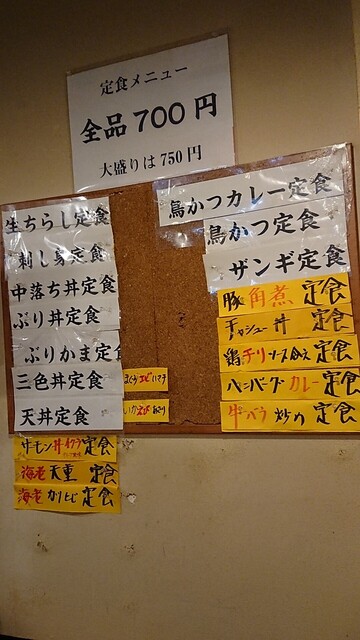 定食メニュー
全品700円
大盛りは750円
生ちらし定食
刺し身定食
中落ち丼定食
ぶり丼定食
ぶりかま定食
三色丼定食
天丼定食
海老天重 定食
海老カツヒビ定食
鳥かつカレー定食
鳥かつ定食
ザンギ定食
豚角煮 定食
チャシュー丼 定食
鶏チリソース炒め 定食
ハンバーグカレー 定食
牛バラ炒め 定食